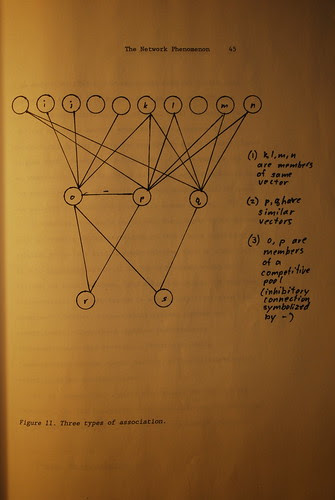 The Network Phenomenon 45
i j k l m n
(1) k, l, m, n
are members
of same
vector
o - p q
(2) p, q have
similar
vectors
(3) o, p are
members
of a
competitive
pool
(inhibitory
connection
symbolized
by -)
r s
Figure 11. Three types of association.